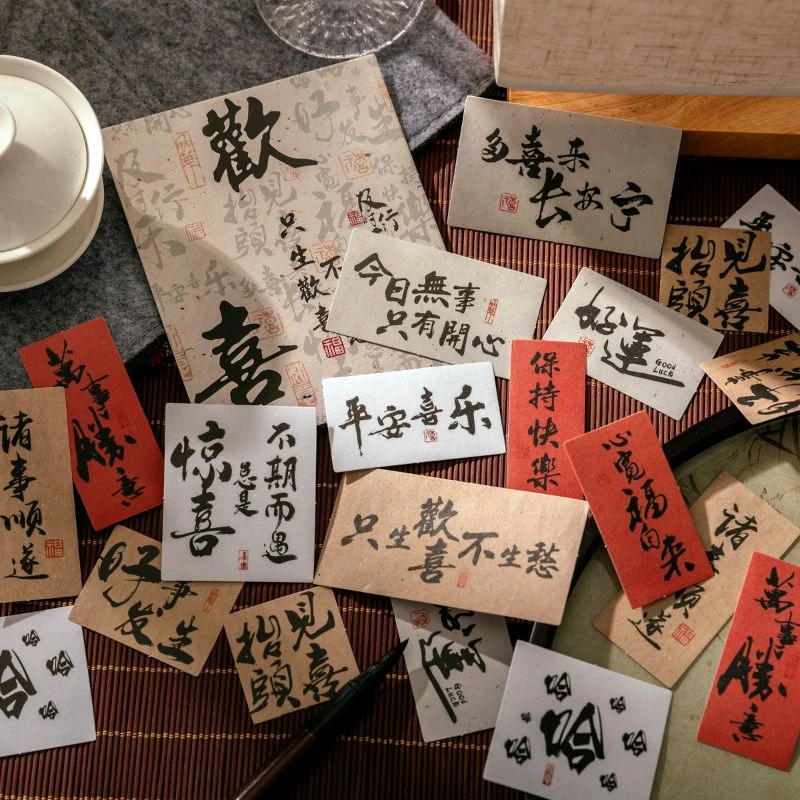 歡
喜
只生歡喜
及行
多喜乐
长安宁
抬頭
見喜
今日無事
只有開心
好運
Good
Luck
萬事勝意
諸事順遂
惊喜
总是
不期而遇
平安喜乐
保持快樂
心寬福自来
只生歡喜不生愁
好事
发生
抬頭
見喜
好運
Good
Luck
諸事順遂
萬事勝意
哈
哈
哈
哈
哈
哈
哈
哈
哈
哈
哈